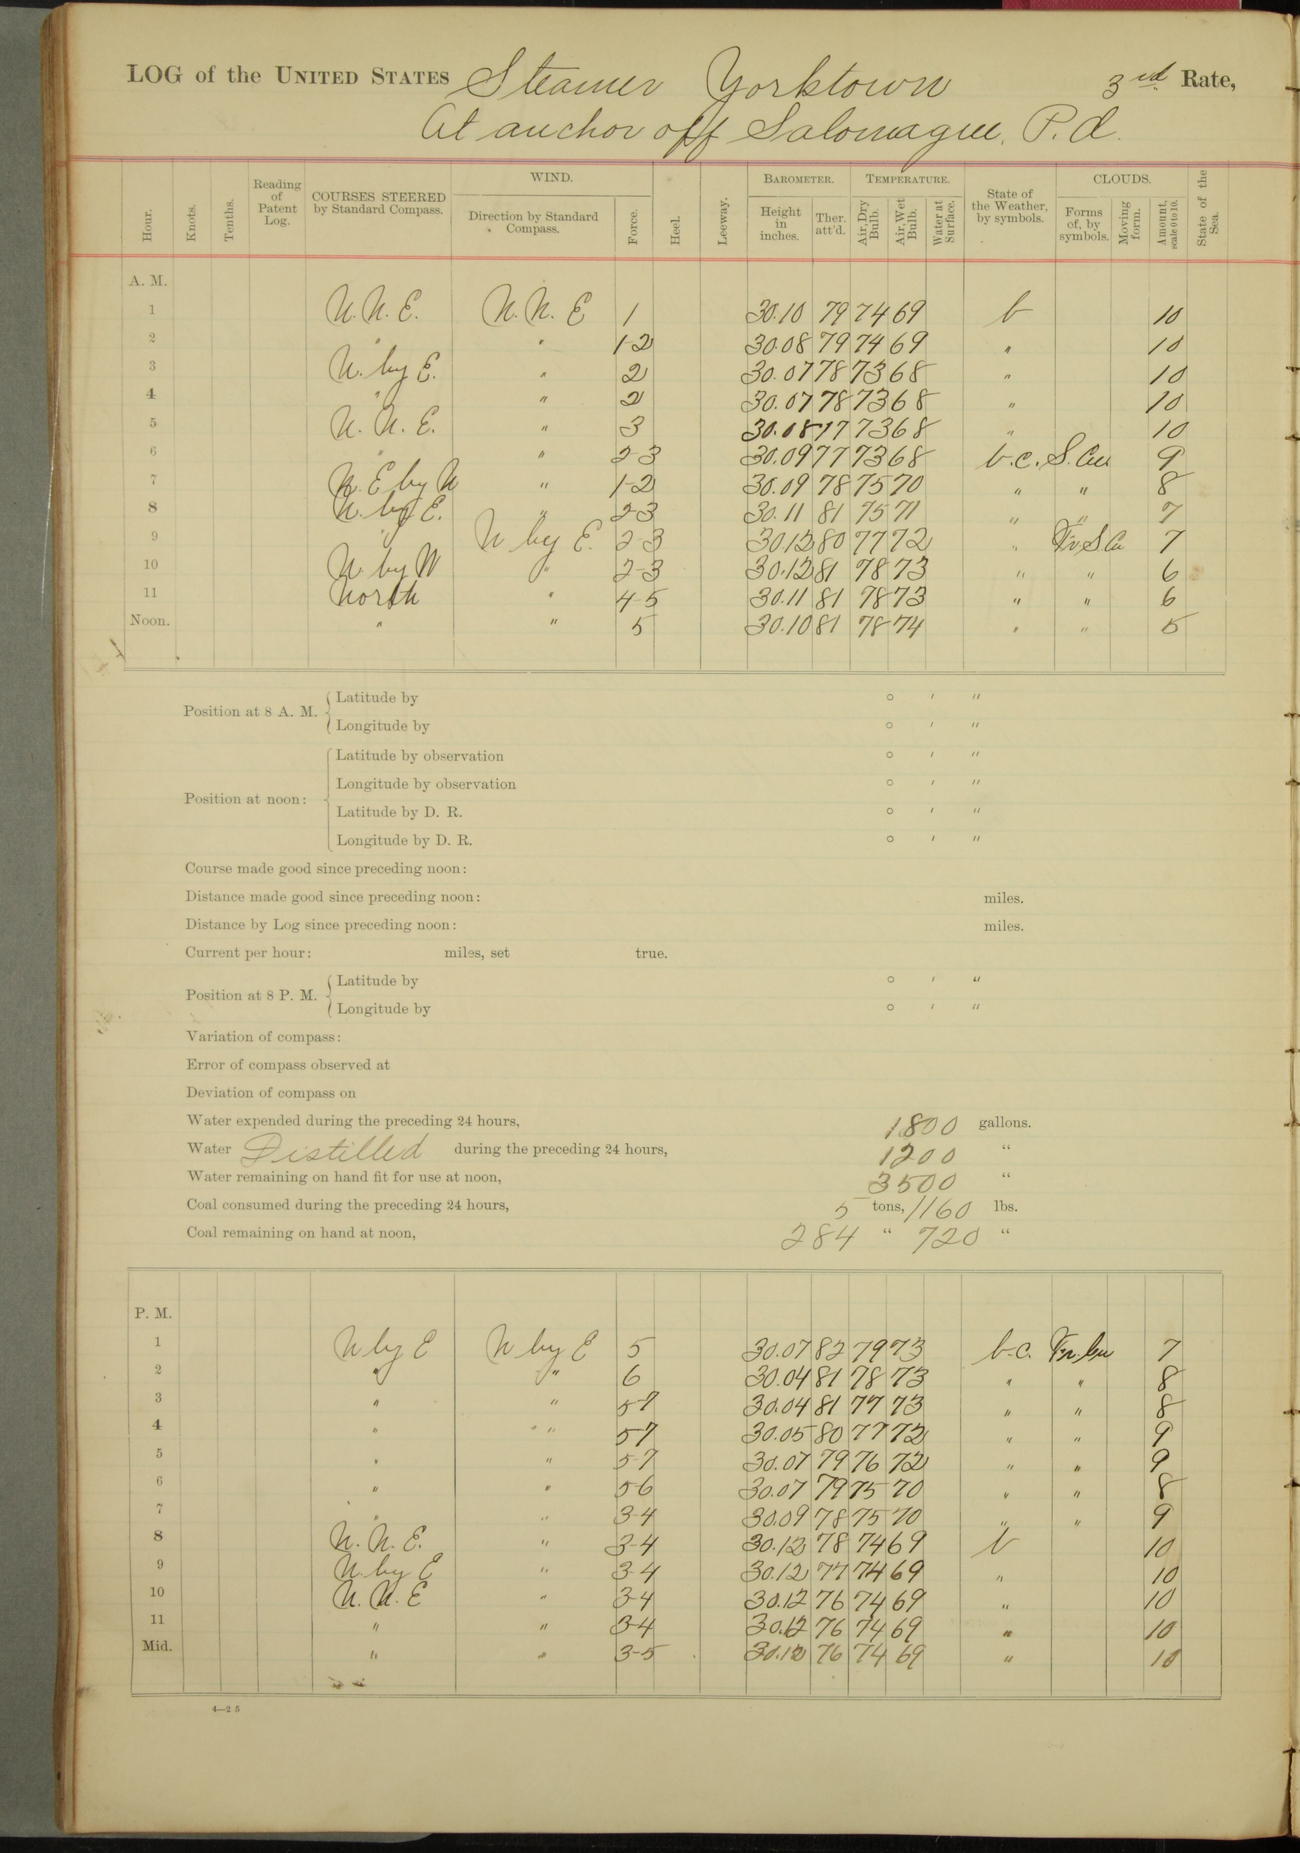 LOG of the UNITED STATES Steamer Yorktown 3rd Rate,
At anchor off Salomague, P.I.
Hour. Knots. Tenths. Reading of Patent Log. COURSES STEERED by Standard Compass. WIND. Direction by Standard Compass. Force. Heel. Leeway. BAROMETER. Height in inches. Ther. att'd. TEMPERATURE. Air, Dry Bulb. Air, Wet Bulb. Water at Surface. State of the Weather, by symbols. CLOUDS. Forms of, by symbols. Moving form. Amount, scale 0 to 10. State of the Sea.
A. M.
1 N.N.E. N.N.E 1 30.10 79 74 69 b 10
2 " " 1-2 30.08 79 74 69 " 10
3 N. by E. " 2 30.07 78 73 68 " 10
4 " " 2 30.07 78 73 68 " 10
5 N.N.E. " 3 30.08 77 73 68 " 10
6 " " 2-3 30.09 77 73 68 b.c. S.Cu 9
7 N.E by N " 1-2 30.09 78 75 70 " " 8
8 N. by E. " 2-3 30.11 81 75 71 " " 7
9 " N by E. 2-3 30.12 80 77 72 " Fr.S.Cu 7
10 N by W " 2-3 30.12 81 78 73 " " 6
11 North " 4-5 30.11 81 78 73 " " 6
Noon. " " 5 30.10 81 78 74 " " 5
Position at 8 A. M. Latitude by ° ' "
Longitude by ° ' "
Position at noon: Latitude by observation ° ' "
Longitude by observation ° ' "
Latitude by D. R. ° ' "
Longitude by D. R. ° ' "
Course made good since preceding noon:
Distance made good since preceding noon: miles.
Distance by Log since preceding noon: miles.
Current per hour: miles, set true.
Position at 8 P. M. Latitude by ° ' "
Longitude by ° ' "
Variation of compass:
Error of compass observed at
Deviation of compass on
Water expended during the preceding 24 hours, 1800 gallons.
Water Distilled during the preceding 24 hours, 1200 "
Water remaining on hand fit for use at noon, 3500 "
Coal consumed during the preceding 24 hours, 5 tons, 1160 lbs.
Coal remaining on hand at noon, 284 " 720 "
P. M.
1 N by E N by E 5 30.07 82 79 73 b.c. Fr.Cu 7
2 " " 6 30.04 81 78 73 " " 8
3 " " 5-7 30.04 81 77 73 " " 8
4 " " 5-7 30.05 80 77 72 " " 9
5 " " 5-7 30.07 79 76 72 " " 9
6 " " 5-6 30.07 79 75 70 " " 8
7 " " 3-4 30.09 78 75 70 " " 9
8 N.N.E. " 3-4 30.12 78 74 69 b 10
9 N. by E " 3-4 30.12 77 74 69 " 10
10 N.N.E " 3-4 30.12 76 74 69 " 10
11 " " 3-4 30.12 76 74 69 " 10
Mid. " " 3-5 30.12 76 74 69 " 10
4—2 5